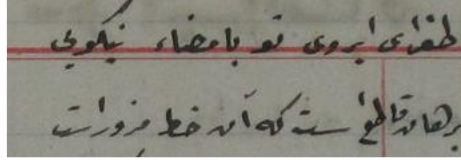 طغرای ابروی تو بامضاء نیکویی
برهان قاطع است که آن خط مزور است